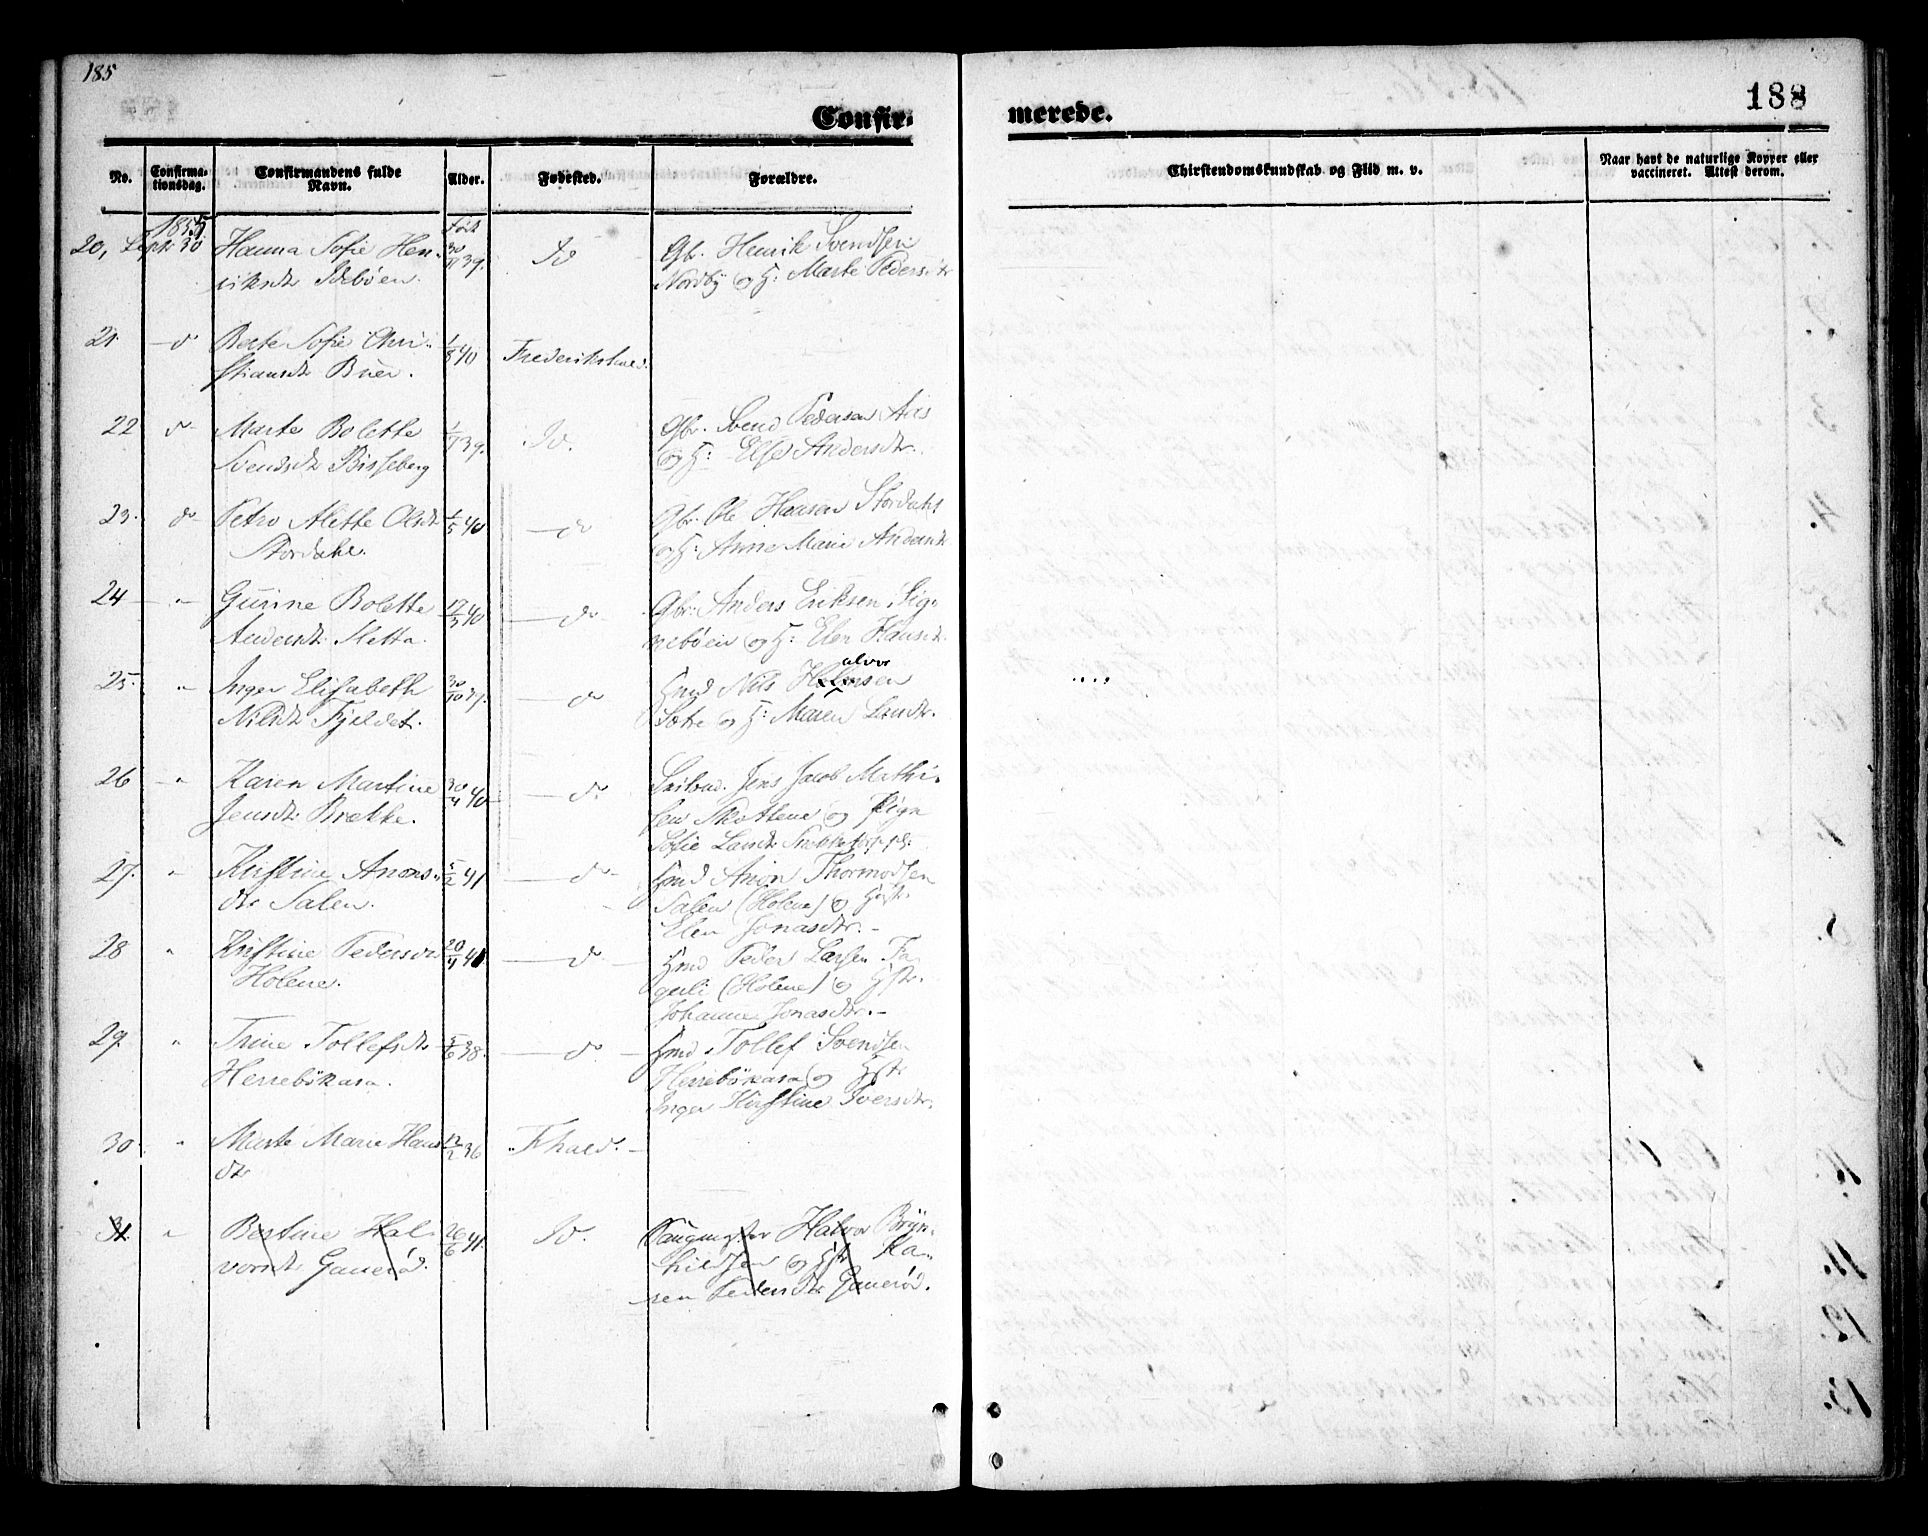 185
188
Confir-
merede.
No.
Confirma-
tionsdag.
Confirmandens fulde
Navn.
Alder.
Fødested.
Forældre.
Chirstendomskundskab og Flid m. v.
Naar havt de naturlige Kopper eller
vaccineret. Attest derom.
1855
20, Septr 30 Hanna Sofie Hen-
39. Id Gbr. Henrik Svendsen
Nordby og H: Marte Pedersdtr
21. do Berte Sofie Chri-
stiansdtr Buer. 1/8 40 Frederikshald.
22 do Marte Bolette
Svendsdtr Bisseberg 39. Id. Gbr. Svend Pedersen Aas
og H: Else Andersdtr.
23. do Petro Alette Olsdtr
Stordahl. 1/5 40 do Gbr. Ole Hansen Stordahl
og H: Anne Marie Andersdtr
24 " Gurine Bolette
Andersdtr Sletta. 17/3 40 do Gbr. Anders Eriksen Sig-
nebøen og H: Elen Hansdtr.
25. " Inger Elisabeth
Nilsdtr Fjeldet. 30/10 39. do Hmd Nils Halvorsen
og H: Maren Larsdtr.
26 " Karen Martine
Jensdtr Brekke. 30/4 40 do. Jens Jacob Mathi-
sen Skottene og Pige
Sofie Larsdtr
27. " Kirstine Anons-
dtr Salen. 5/2 41 do Hmd Anon Thormodsen
Salen (Holene) og Hstr.
Elen Jonasdtr.
28 " Kirstine Pedersdtr
Holene. 20/4 41 do Hmd Peder Larsen Fa-
guli (Holene) og Hstr.
Johanne Jonasdtr.
29. " Trine Tollefsdtr
Herrebøkasa. 5/6 38. do. Hmd Tollef Svendsen
Herrebøkasa og Hstr
Inger Kirstine Iversdtr.
30. " Marte Marie Hans
dtr 12/2 36 Fhald.
31 " Bestine Hal-
vorsdtr Ganerød. 26/6 41. Id. Halvor Bryn-
hildsen og Hstr Ka-
ren Pedersdtr Ganerød.